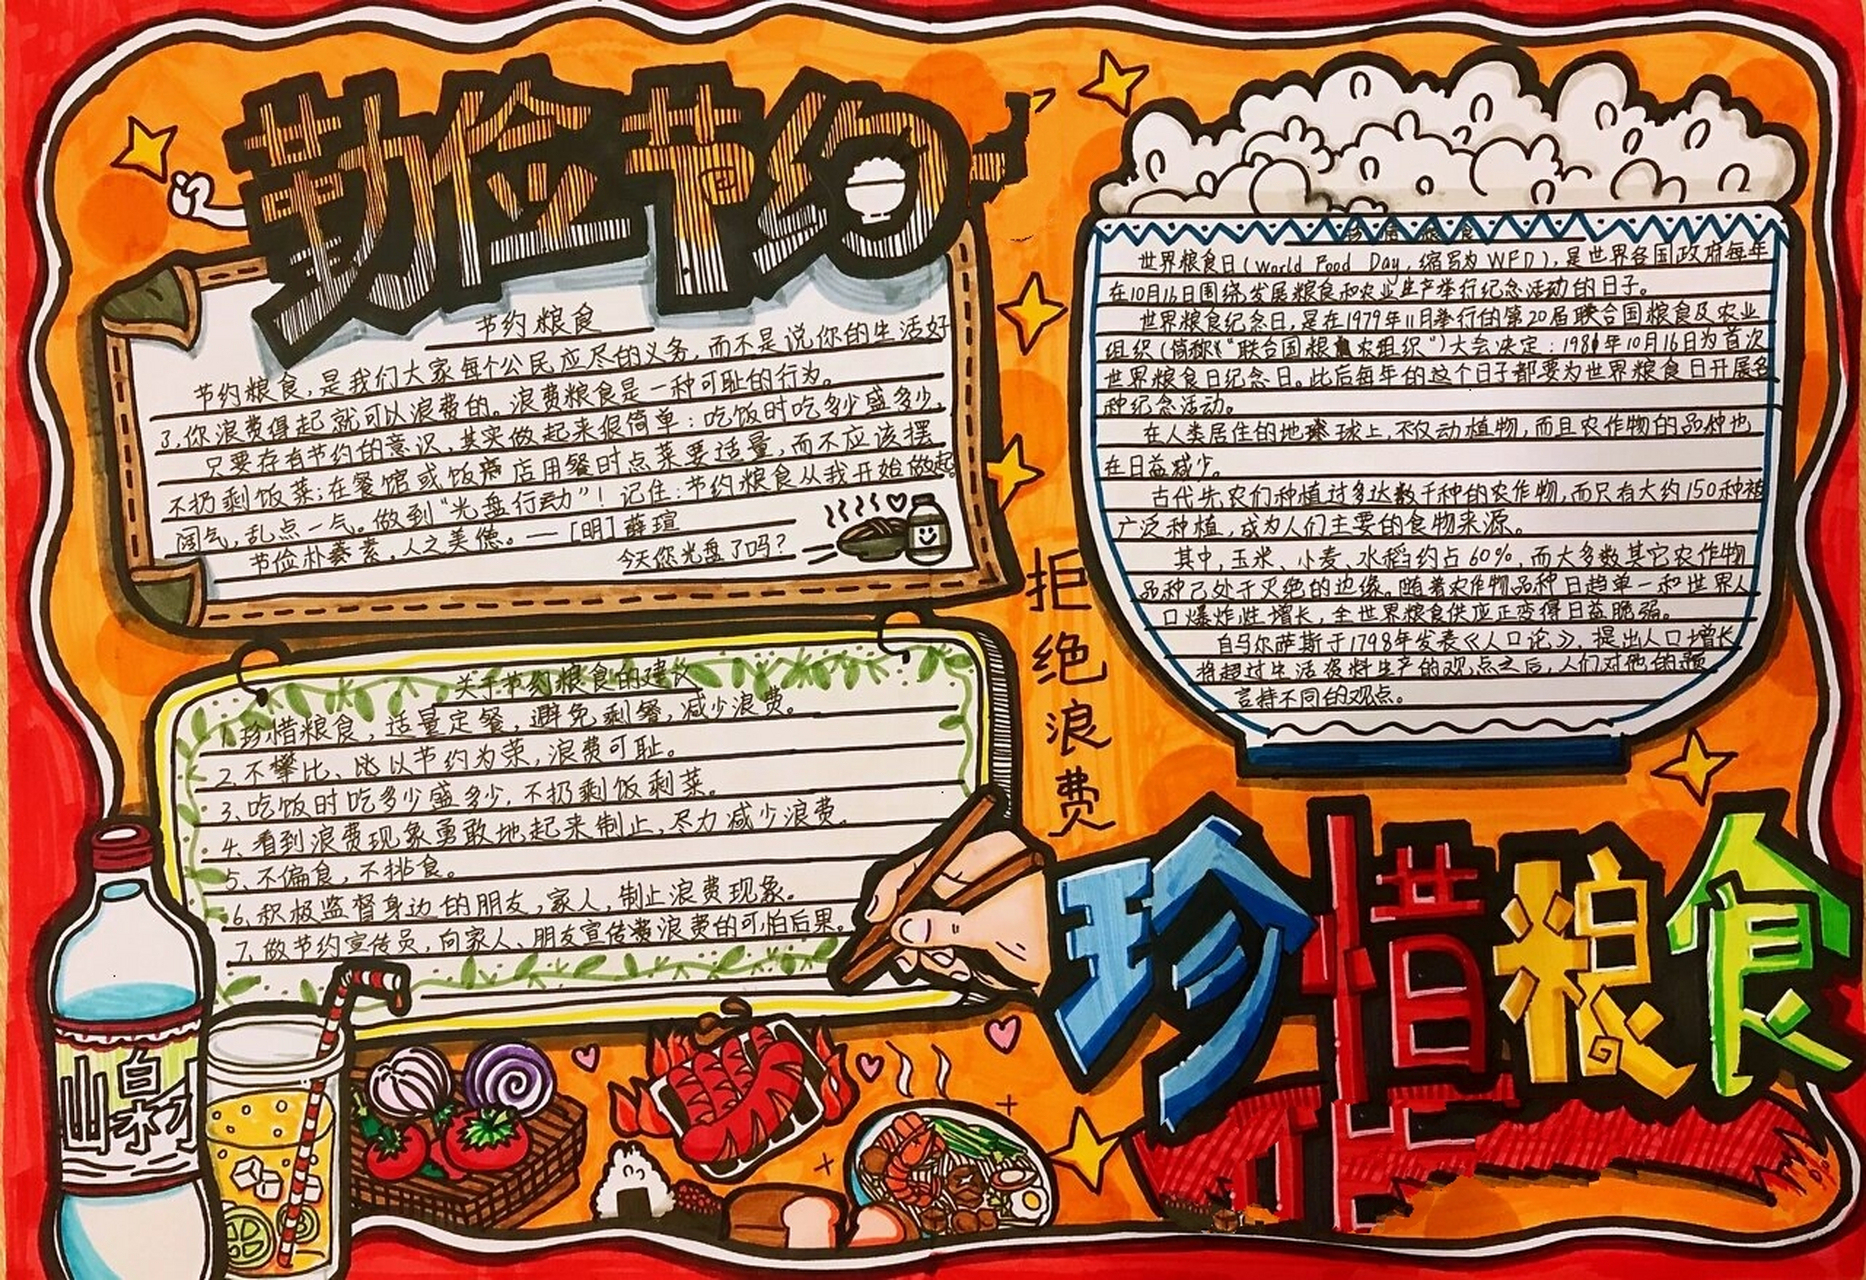 勤俭节约
节约粮食
节约粮食,是我们大家每个公民应尽的义务,而不是说你的生活好
了,你浪费得起就可以浪费的。浪费粮食是一种可耻的行为。
只要存有节约的意识,其实做起来很简单:吃饭时吃多少盛多少,
不扔剩饭菜;在餐馆或饭店用餐时点菜要适量,而不应该摆
阔气,乱点一气。做到“光盘行动”!记住:节约粮食从我开始做起
节俭朴素,人之美德。——[明]薛瑄
今天你光盘了吗?
关于节约粮食的建议
1.珍惜粮食,适量定餐,避免剩餐,减少浪费。
2、不攀比、以节约为荣,浪费可耻。
3、吃饭时吃多少盛多少,不扔剩饭剩菜。
4、看到浪费现象勇敢地起来制止,尽力减少浪费。
5、不偏食,不挑食。
6、积极监督身边的朋友,家人,制止浪费现象。
7、做节约宣传员,向家人、朋友宣传浪费的可怕后果。
拒绝浪费
珍惜粮食
世界粮食日(World Food Day,缩写为WFD),是世界各国政府每年
在10月16日围绕发展粮食和农业生产举行纪念活动的日子。
世界粮食纪念日,是在1979年11月举行的第20届联合国粮食及农业
组织(简称“联合国粮农组织”)大会决定:1981年10月16日为首次
世界粮食日纪念日。此后每年的这个日子都要为世界粮食日开展各
种纪念活动。
在人类居住的地球上,不仅动植物,而且农作物的品种也
在日益减少。
古代先农们种植过多达数千种的农作物,而只有大约150种被
广泛种植,成为人们主要的食物来源。
其中,玉米、小麦、水稻约占60%,而大多数其它农作物
品种已处于灭绝的边缘。随着农作物品种日趋单一和世界人
口爆炸性增长,全世界粮食供应正变得日益脆弱。
自马尔萨斯于1798年发表《人口论》,提出人口增长
将超过生活资料生产的观点之后,人们对他的预
言持不同的观点。
珍惜粮食